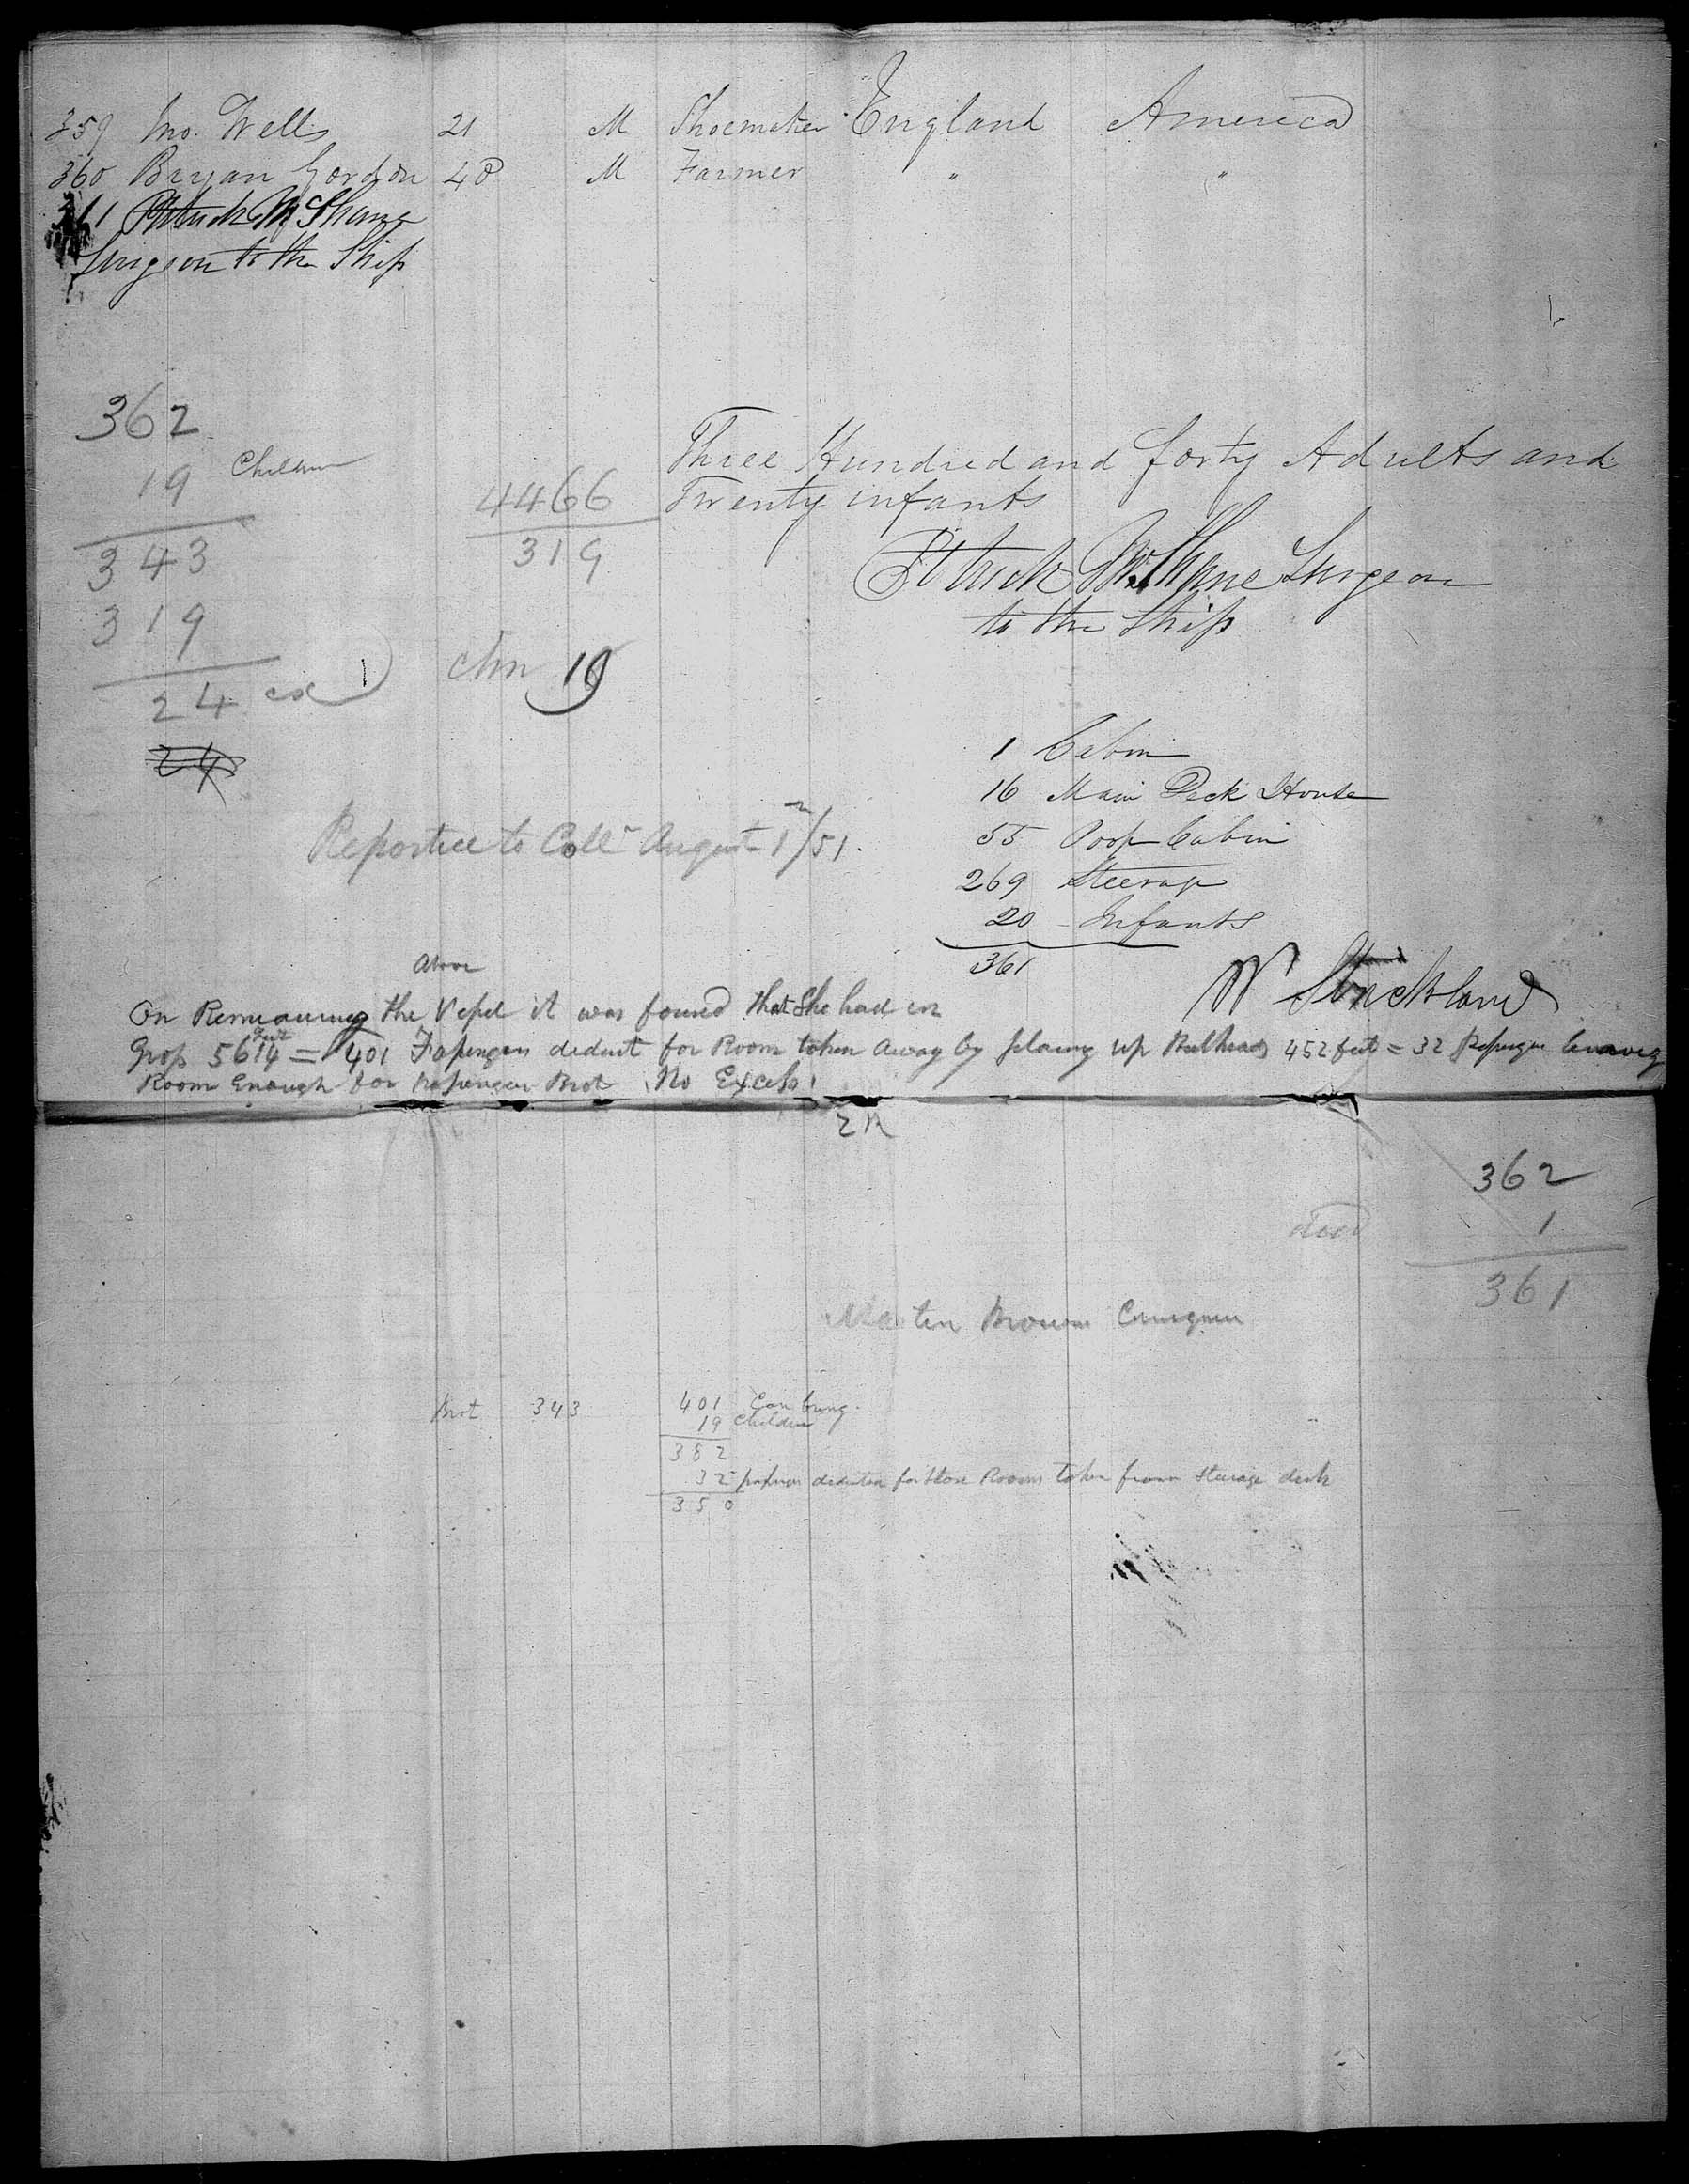 359 Jno. Wells 21 M Shoemaker England America
360 Bryan Gordon 48 M Farmer " "
361 Patrick McShane
Surgeon to the Ship
362
19 Children
343
319
24 ex
24
4466
319
Chn 19
Three Hundred and forty Adults and
Twenty infants
Patrick McShane Surgeon
to the Ship
1 Cabin
16 Main Deck House
55 Poop Cabin
269 Steerage
20 Infants
361
Reported to Coll August 1/51.
W Strickland
above
On Remeasuring the Vessel it was found that She had in
Gross 5614 feet = 401 Passengers deduct for Room taken away by placing up Bulkheads 452 feet = 32 Passengers leaving
Room Enough for Passengers Brot No Excess
362
dead 1
361
Brown
Brot 343
401 Can bring
19 Children
382
32 passengers deducted for Store Rooms taken from steerage deck
350